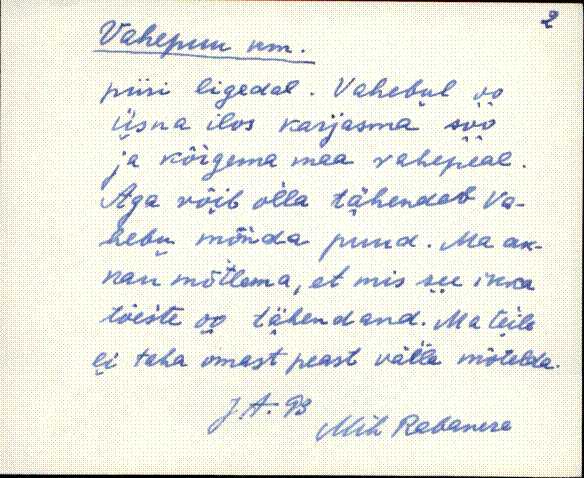 2
Vahepuu nm.
piiri ligedal. Vahebul oo
üsna ilos karjasma soo
ja kõrgema maa vahepeal.
Aga võib olla tähendab Va-
hebu mõnda puud. Ma ak-
kan mõtlema, et mis see ikka
tõeste oo tähendand. Ma teile
ei taha omast peast välla mõtelda.
J.A. 93
Mih Rabanera